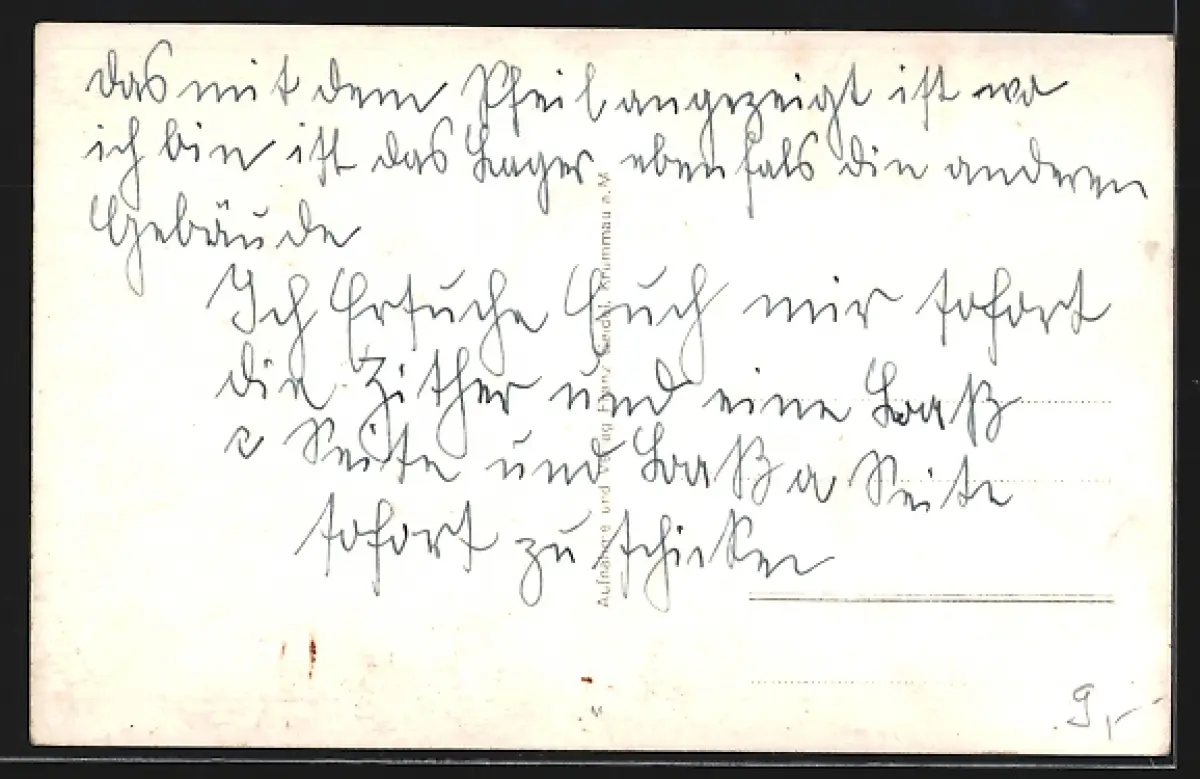 das mit dem Pfeil angezeigt ist wo
ich bin ist das Lager ebenfals die anderen
Gebäude
Ich Ersuche Euch mir sofort
die Zither und eine Baß
Seite und Baß a Seite
sofort zu schicken
Aufnahme und Verlag Franz Seidel, Krummau a. M
9,-